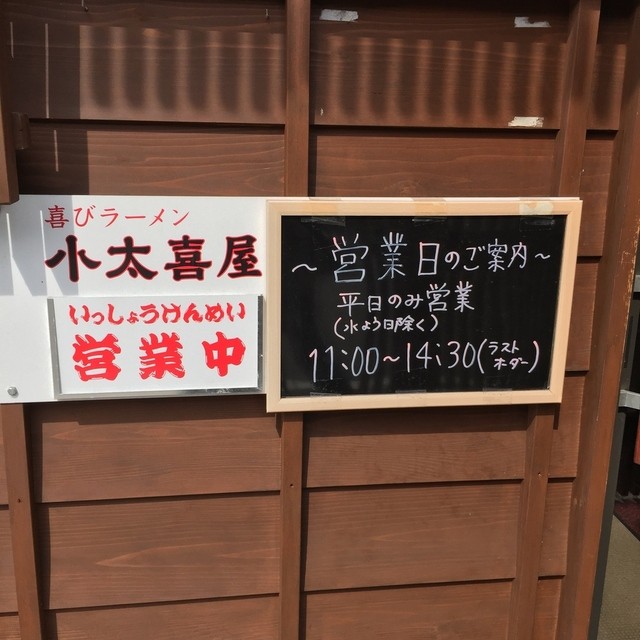 喜びラーメン
小太喜屋
いっしょうけんめい
営業中
～営業日のご案内～
平日のみ営業
(水よう日除く)
11:00～14:30(ラストオーダー)